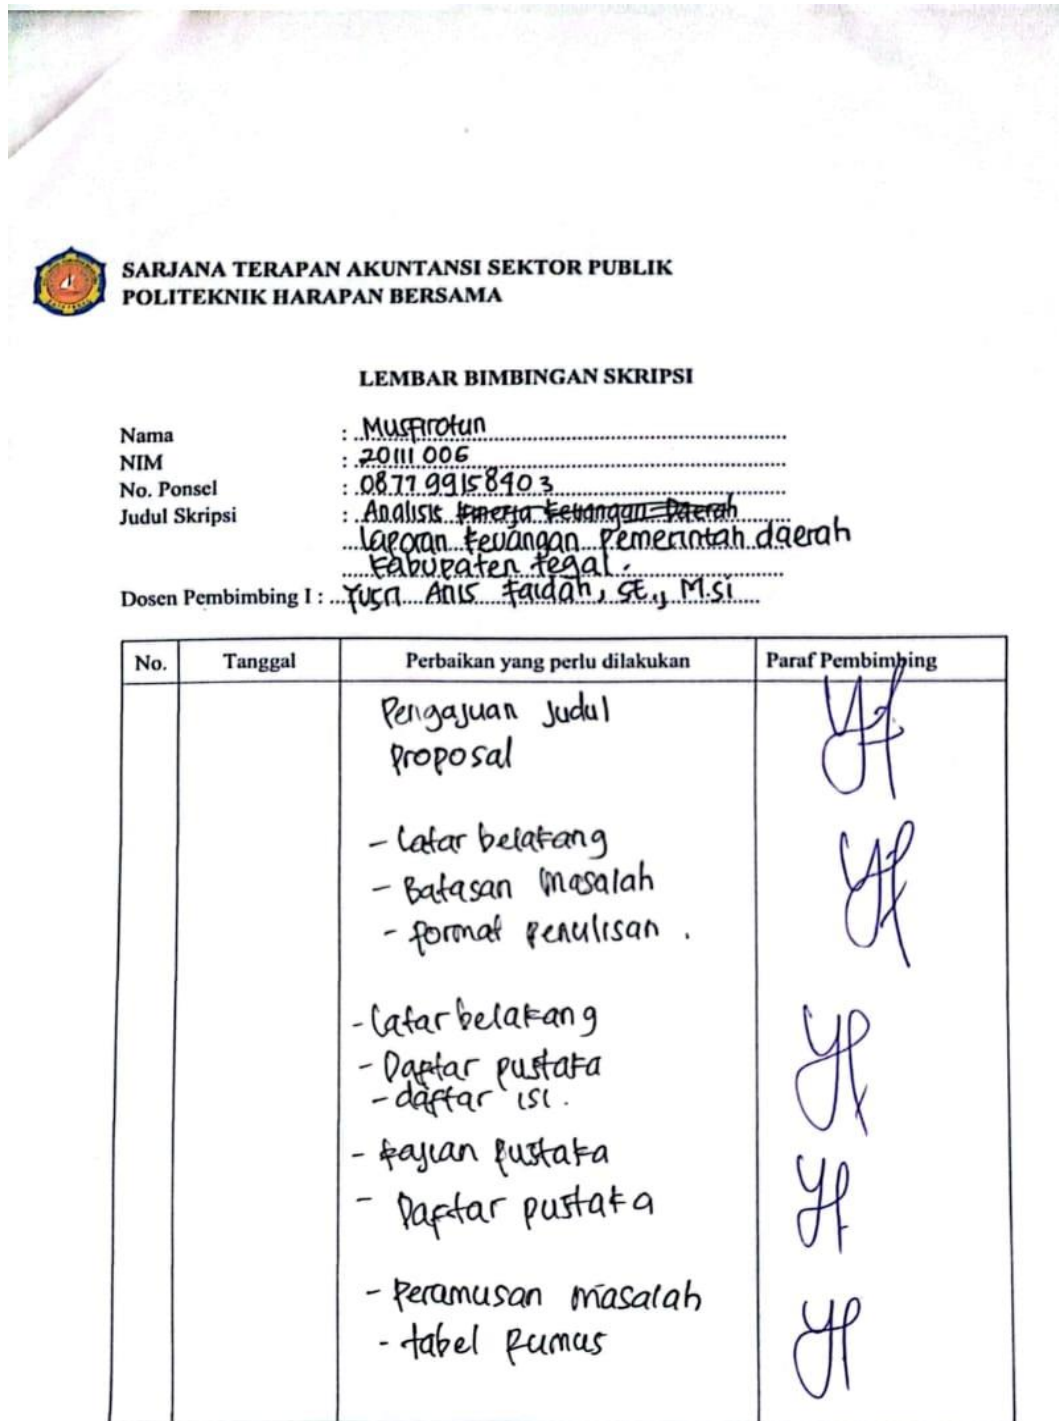 SARJANA TERAPAN AKUNTANSI SEKTOR PUBLIK
POLITEKNIK HARAPAN BERSAMA
LEMBAR BIMBINGAN SKRIPSI
Nama : Musfirotun
NIM : 20111006
No. Ponsel : 087799158403
Judul Skripsi : Analisis Kinerja Keuangan Daerah
Laporan Keuangan Pemerintah daerah
Kabupaten Tegal.
Dosen Pembimbing I : Yusri Anis Faidah, SE., M.Si
No. Tanggal Perbaikan yang perlu dilakukan Paraf Pembimbing
Pengajuan Judul
Proposal
- Latar belakang
- Batasan Masalah
- format penulisan .
- Latar belakang
- Daftar pustaka
- daftar isi.
- kajian pustaka
- Daftar pustaka
- Perumusan masalah
- tabel Rumus